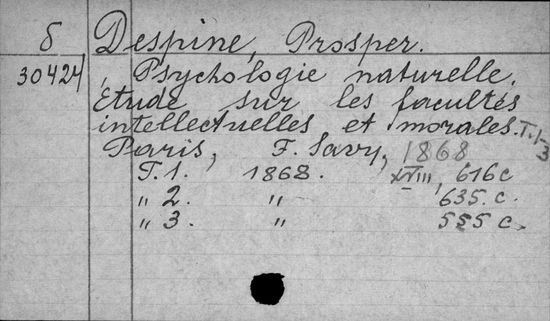 δ Despine, Prosper.
30424 Psychologie naturelle.
Etude sur les facultés
intellectuelles et morales. T. 1-3
Paris, F. Savy, 1868
T. 1. 1868. XVIII, 616 c
" 2. " 635. c.
" 3. " 555 c.